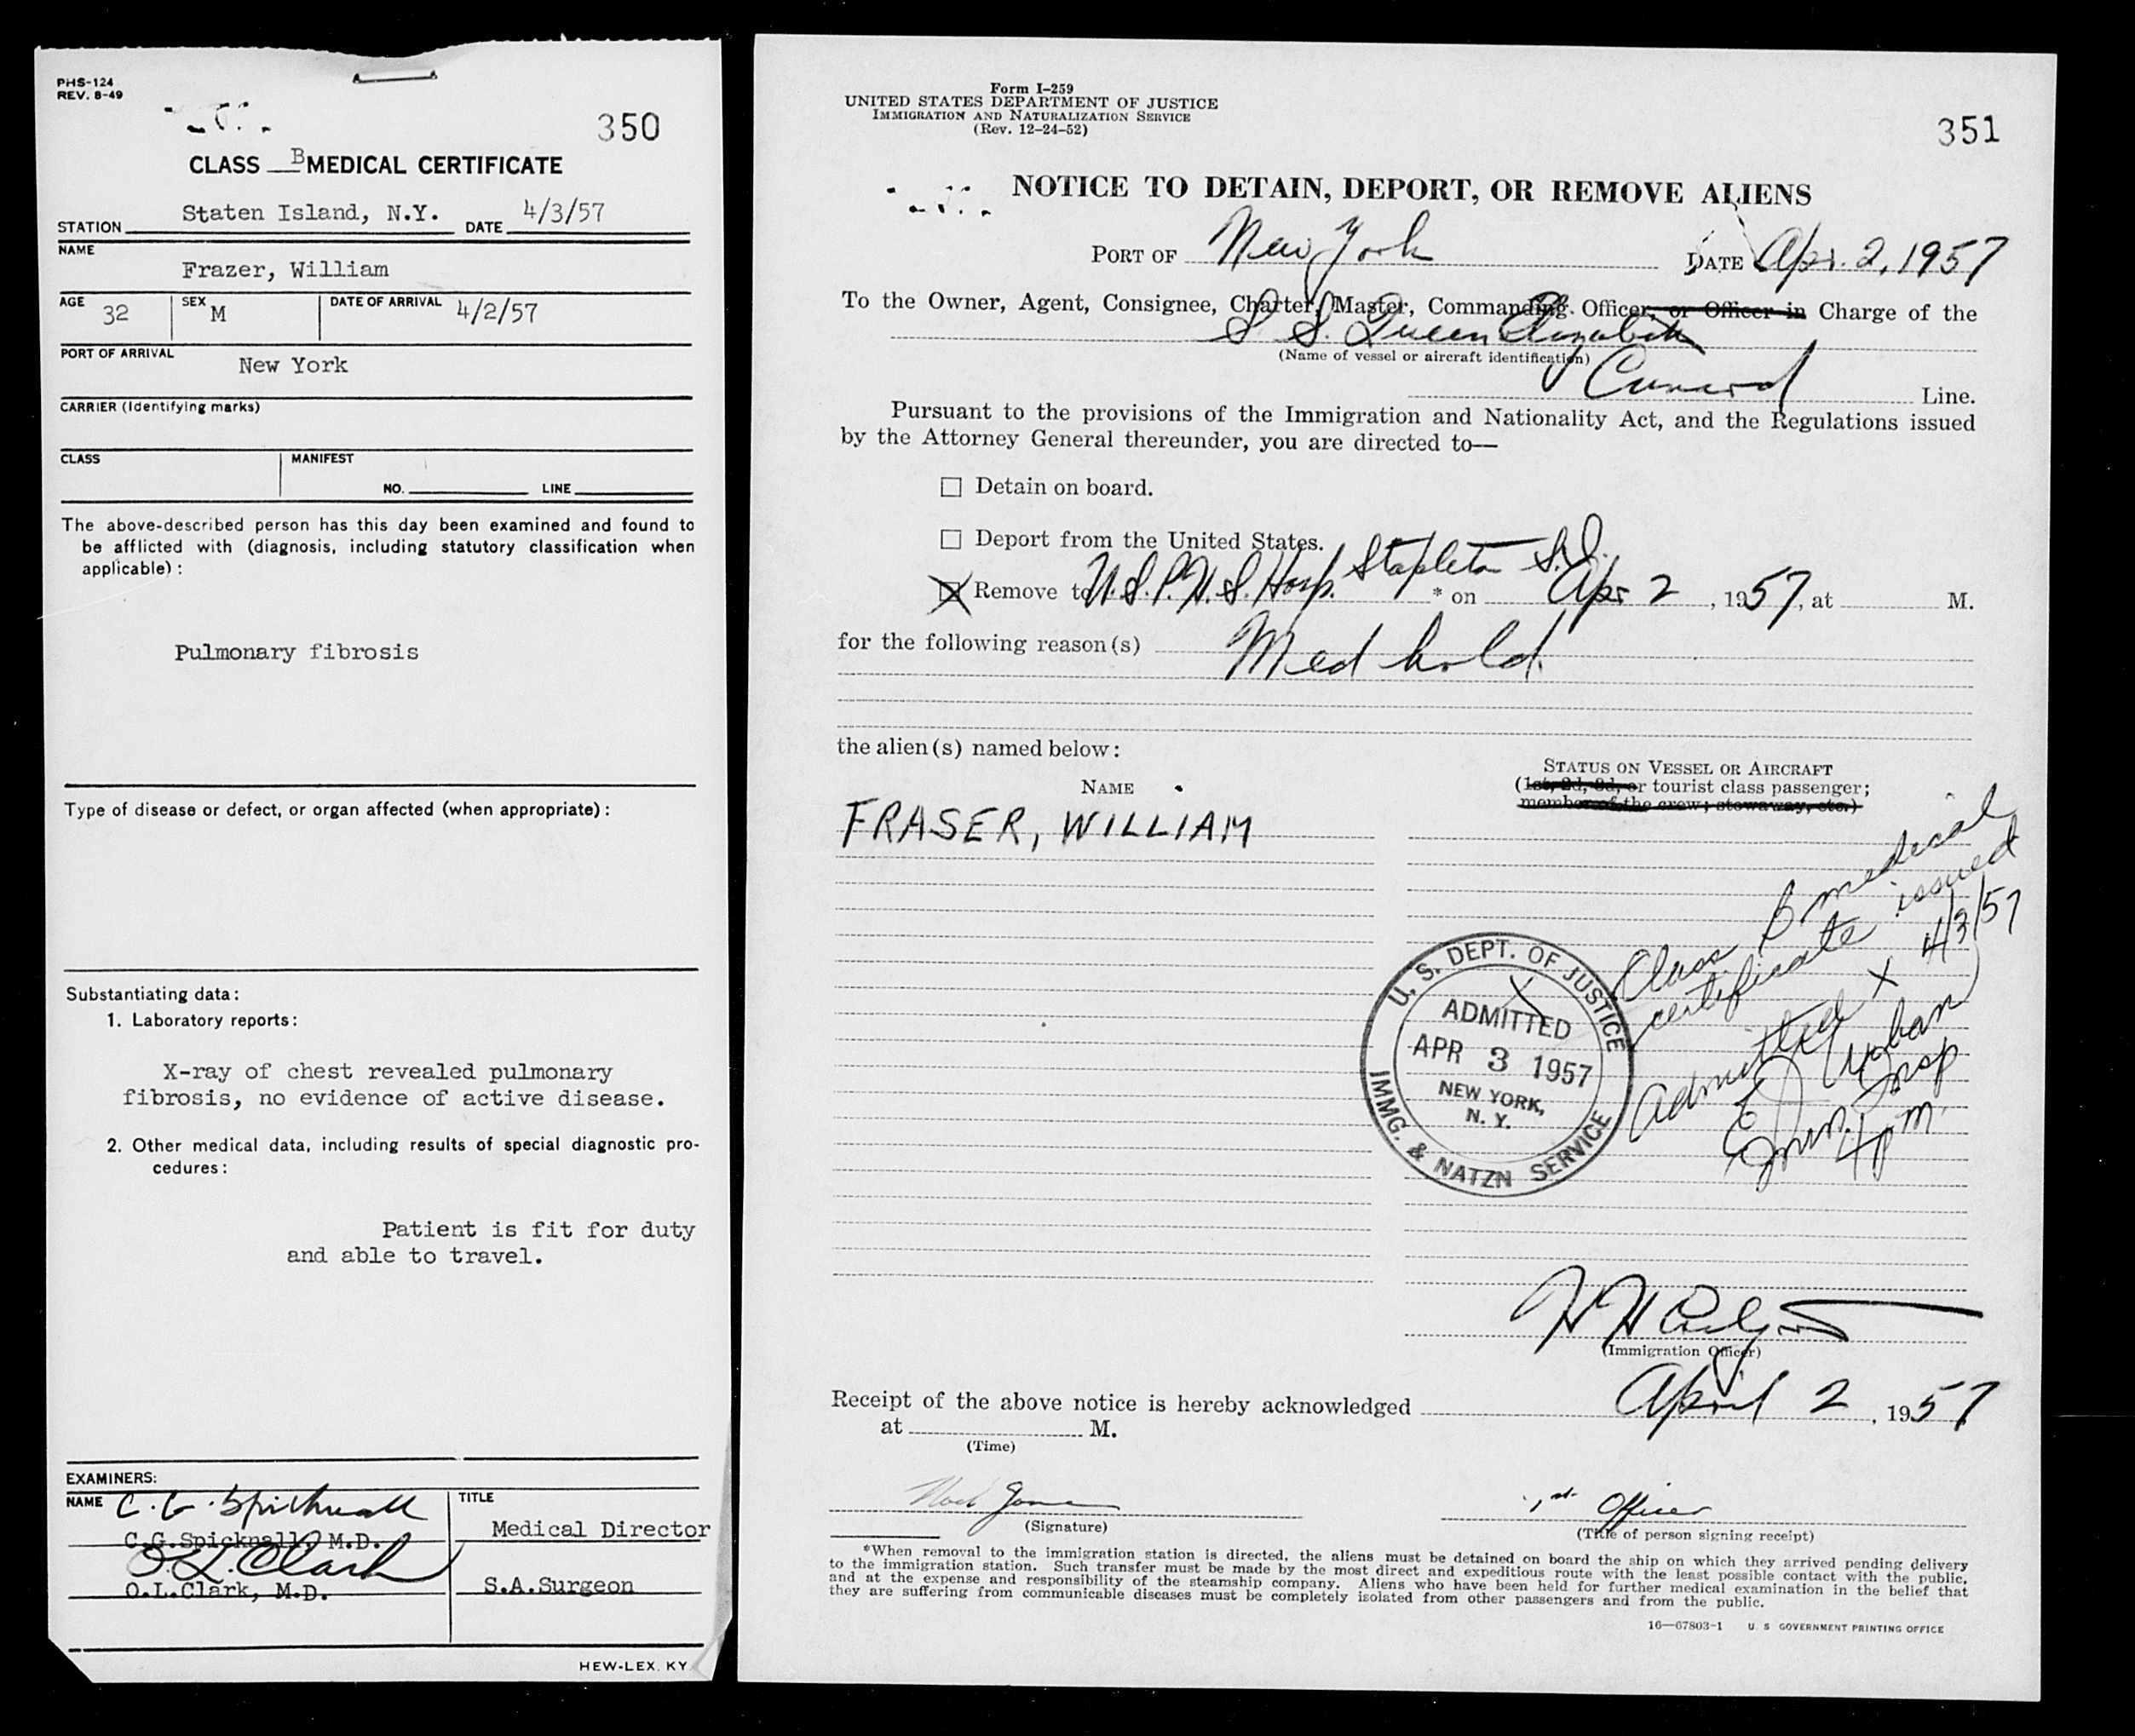 PHS-124
REV. 8-49
350
CLASS B MEDICAL CERTIFICATE
STATION Staten Island, N.Y. DATE 4/3/57
NAME
Frazer, William
AGE 32 SEX M DATE OF ARRIVAL 4/2/57
PORT OF ARRIVAL
New York
CARRIER (Identifying marks)
CLASS MANIFEST
NO. LINE
The above-described person has this day been examined and found to
be afflicted with (diagnosis, including statutory classification when
applicable):
Pulmonary fibrosis
Type of disease or defect, or organ affected (when appropriate):
Substantiating data:
1. Laboratory reports:
X-ray of chest revealed pulmonary
fibrosis, no evidence of active disease.
2. Other medical data, including results of special diagnostic pro-
cedures:
Patient is fit for duty
and able to travel.
EXAMINERS:
NAME C. G. Spicknall TITLE
C.G.Spicknall, M.D. Medical Director
O.L. Clark
O.L.Clark, M.D. S.A.Surgeon
HEW-LEX. KY
Form I-259
UNITED STATES DEPARTMENT OF JUSTICE
IMMIGRATION AND NATURALIZATION SERVICE
(Rev. 12-24-52)
351
NOTICE TO DETAIN, DEPORT, OR REMOVE ALIENS
PORT OF New York DATE Apr. 2, 1957
To the Owner, Agent, Consignee, Charter, Master, Commanding Officer, or Officer in Charge of the
S S. Queen Elizabeth
(Name of vessel or aircraft identification)
Cunard Line.
Pursuant to the provisions of the Immigration and Nationality Act, and the Regulations issued
by the Attorney General thereunder, you are directed to—
☐ Detain on board.
☐ Deport from the United States.
☒ Remove to U.S.P.H.S. Hosp. Stapleton S.I. * on Apr 2, 1957, at M.
for the following reason(s) Med hold.
the alien(s) named below:
NAME
STATUS ON VESSEL OR AIRCRAFT
(1st, 2d, 3d, or tourist class passenger;
member of the crew; stowaway, etc.)
FRASER, WILLIAM
Class B medical
certificate issued
4/3/57
Admitted X
Urban
Imm. Insp
4 pm.
U. S. DEPT. OF JUSTICE
ADMITTED
APR 3 1957
NEW YORK,
N. Y.
IMMG. & NATZN SERVICE
(Immigration Officer)
Receipt of the above notice is hereby acknowledged April 2, 1957
at M.
(Time)
1st Officer
(Signature) (Title of person signing receipt)
*When removal to the immigration station is directed, the aliens must be detained on board the ship on which they arrived pending delivery
to the immigration station. Such transfer must be made by the most direct and expeditious route with the least possible contact with the public,
and at the expense and responsibility of the steamship company. Aliens who have been held for further medical examination in the belief that
they are suffering from communicable diseases must be completely isolated from other passengers and from the public.
16—67803-1 U. S GOVERNMENT PRINTING OFFICE